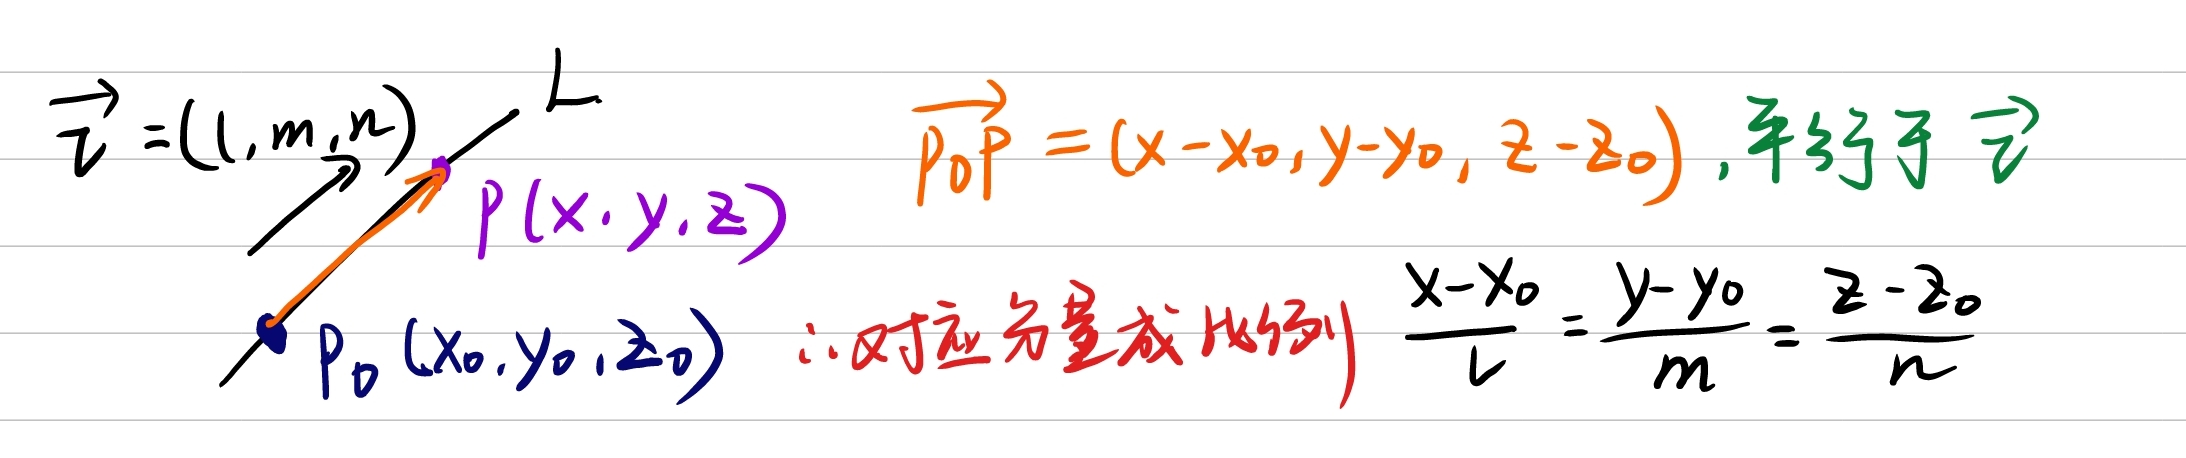 L
τ⃗ = (l, m, n)
P(x, y, z)
P₀(x₀, y₀, z₀)
P₀P⃗ = (x-x₀, y-y₀, z-z₀), 平行于 τ⃗
∴对应分量成比例 (x-x₀)/l = (y-y₀)/m = (z-z₀)/n